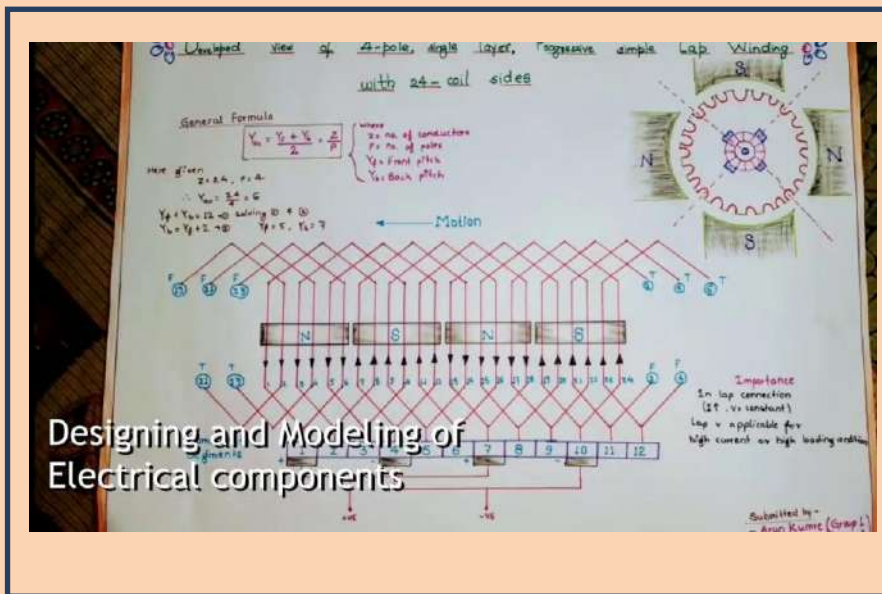 Developed view of 4-pole, single layer, Progressive simple Lap Winding
with 24-coil sides
General Formula
Yav = Yf + Yb / 2 = Z / P
where
Z = no. of conductors
P = no. of poles
Yf = Front pitch
Yb = Back pitch
Here given
Z = 24, P = 4
∴ Yav = 24/4 = 6
Yf + Yb = 12 → ① solving ① & ②
Yb = Yf + 2 → ② Yf = 5, Yb = 7
Motion
S
N N
S
F F F T T T
N S N S
T T F F
1 2 3 4 5 6 7 8 9 10 11 12
+ - + -
+ve -ve
Importance
In lap connection
(I↑, V = constant)
Lap applicable for
high current or high loading condition
Designing and Modeling of
Electrical components
Submitted by -
- Arun Kumre (Group